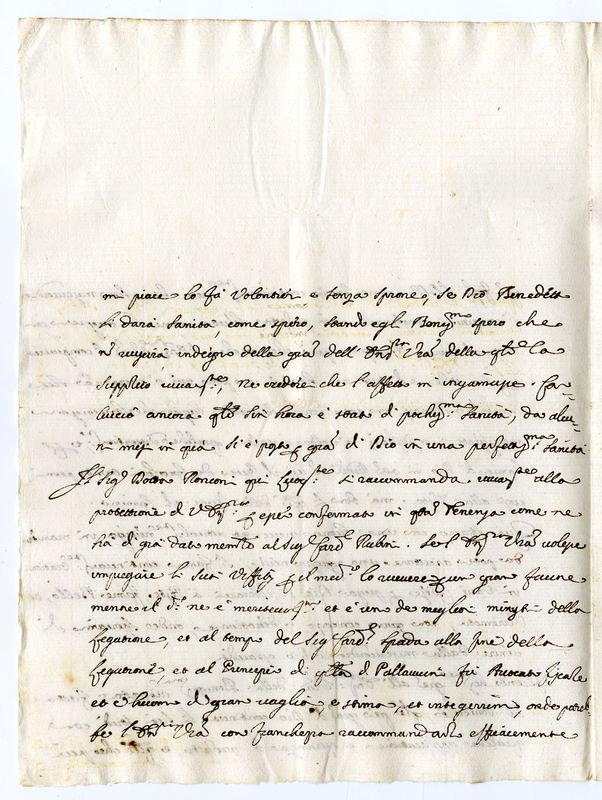 mi piace lo fà Volontieri e senza sprone, se Dio Benedetto
li darà Sanità, come spero, stando egli Benigmo spero che
nō riuscirà indegno della gra dell' Vra della qle la
supplico vivamte, ne crederei che l'affetto m'ingannasse. Car-
luccio ancora qto sin hora è stato di pochissma Sanità, da alcu-
ni mesi in quà si è posto gra di Dio in una perfettma Sanità
Il Sigr Dottr Ronconi qui si raccommanda vivamte alla
protettione di V esser confermato in qsta come ne
hà di già dato memle al Sigr Cardl Rubini. Se l' Vra volesse
impiegare li suoi Uffitij il medmo lo riceverà un gran favore
mentre il do ne è et è uno de meglior ministri della
Legatione, et al tempo del Sigr Cardl Spada alla fine della
Legatione, et al Principio di qlla di Pallavicini fù Avvocato fiscale
et è huomo di gran vaglia, e stima, et integerrimo, onde potreb-
be l' Vra con franchezza raccommandarlo efficacemente